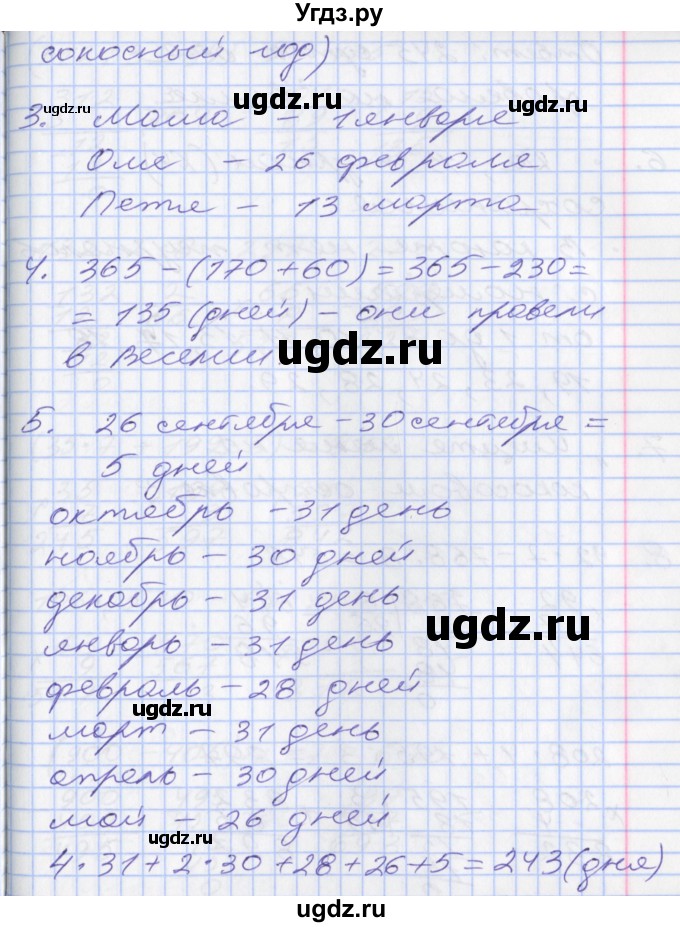 Угдз.ру
сокосный год)
3. Мама – 1 января
Оля – 26 февраля
Петя – 13 марта
4. 365 – (170 + 60) = 365 – 230 =
= 135 (дней) – они провели
в Весели
5. 26 сентября – 30 сентября =
5 дней
октябрь – 31 день
ноябрь – 30 дней
декабрь – 31 день
январь – 31 день
февраль – 28 дней
март – 31 день
апрель – 30 дней
май – 26 дней
4 · 31 + 2 · 30 + 28 + 26 + 5 = 243 (дня)
ugdz.ru
ugdz.ru
ugdz.ru
ugdz.ru
ugdz.ru
ugdz.ru
ugdz.ru
ugdz.ru
ugdz.ru